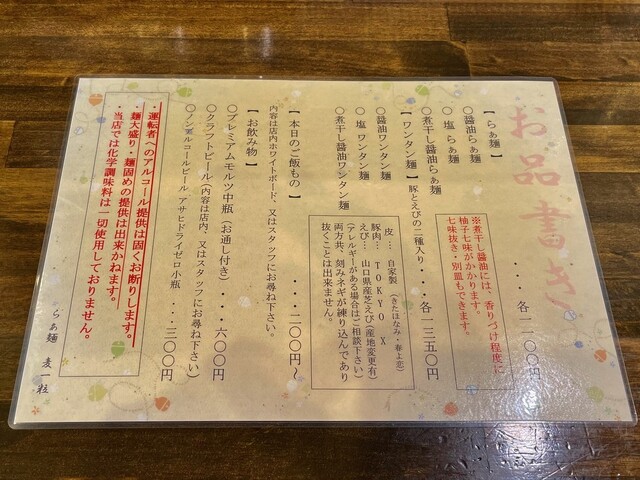 お品書き
【らぁ麺】
○醤油らぁ麺
○塩 らぁ麺
・・・各一一〇〇円
○煮干し醤油らぁ麺
※煮干し醤油には、香りづけ程度に
柚子七味がかかります。
七味抜き・別皿もできます。
【ワンタン麺】豚とえびの二種入り・・・各一三五〇円
○醤油ワンタン麺
○塩 ワンタン麺
○煮干し醤油ワンタン麺
皮… 自家製（きたほなみ・春よ恋）
豚肉… TOKYO X
えび… 山口県産芝えび（産地変更有）
（アレルギーがある場合はご相談下さい）
両方共、刻みネギが練り込んであり
抜くことは出来ません。
【本日のご飯もの】 ・・・二〇〇円～
内容は店内ホワイトボード、又はスタッフにお尋ね下さい。
【お飲み物】
○プレミアムモルツ中瓶（お通し付き）・・・六〇〇円
○クラフトビール（内容は店内、又はスタッフにお尋ね下さい）
○ノンアルコールビール アサヒドライゼロ小瓶 ・・・三〇〇円
・運転者へのアルコール提供は固くお断りします。
・麺大盛り・麺固めの提供は出来かねます。
・当店では化学調味料は一切使用しておりません。
らぁ麺 麦一粒